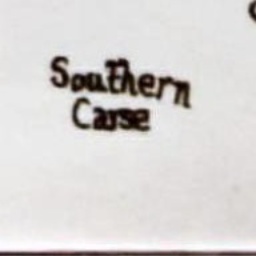 Southern
Carse